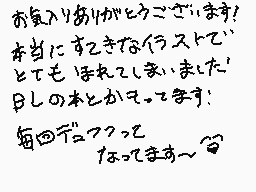 お気入りありがとうございます!
本当にすてきなイラストで
とてもほれてしまいました!
BLの本とかもってます!
毎回デュフフって
なってます〜